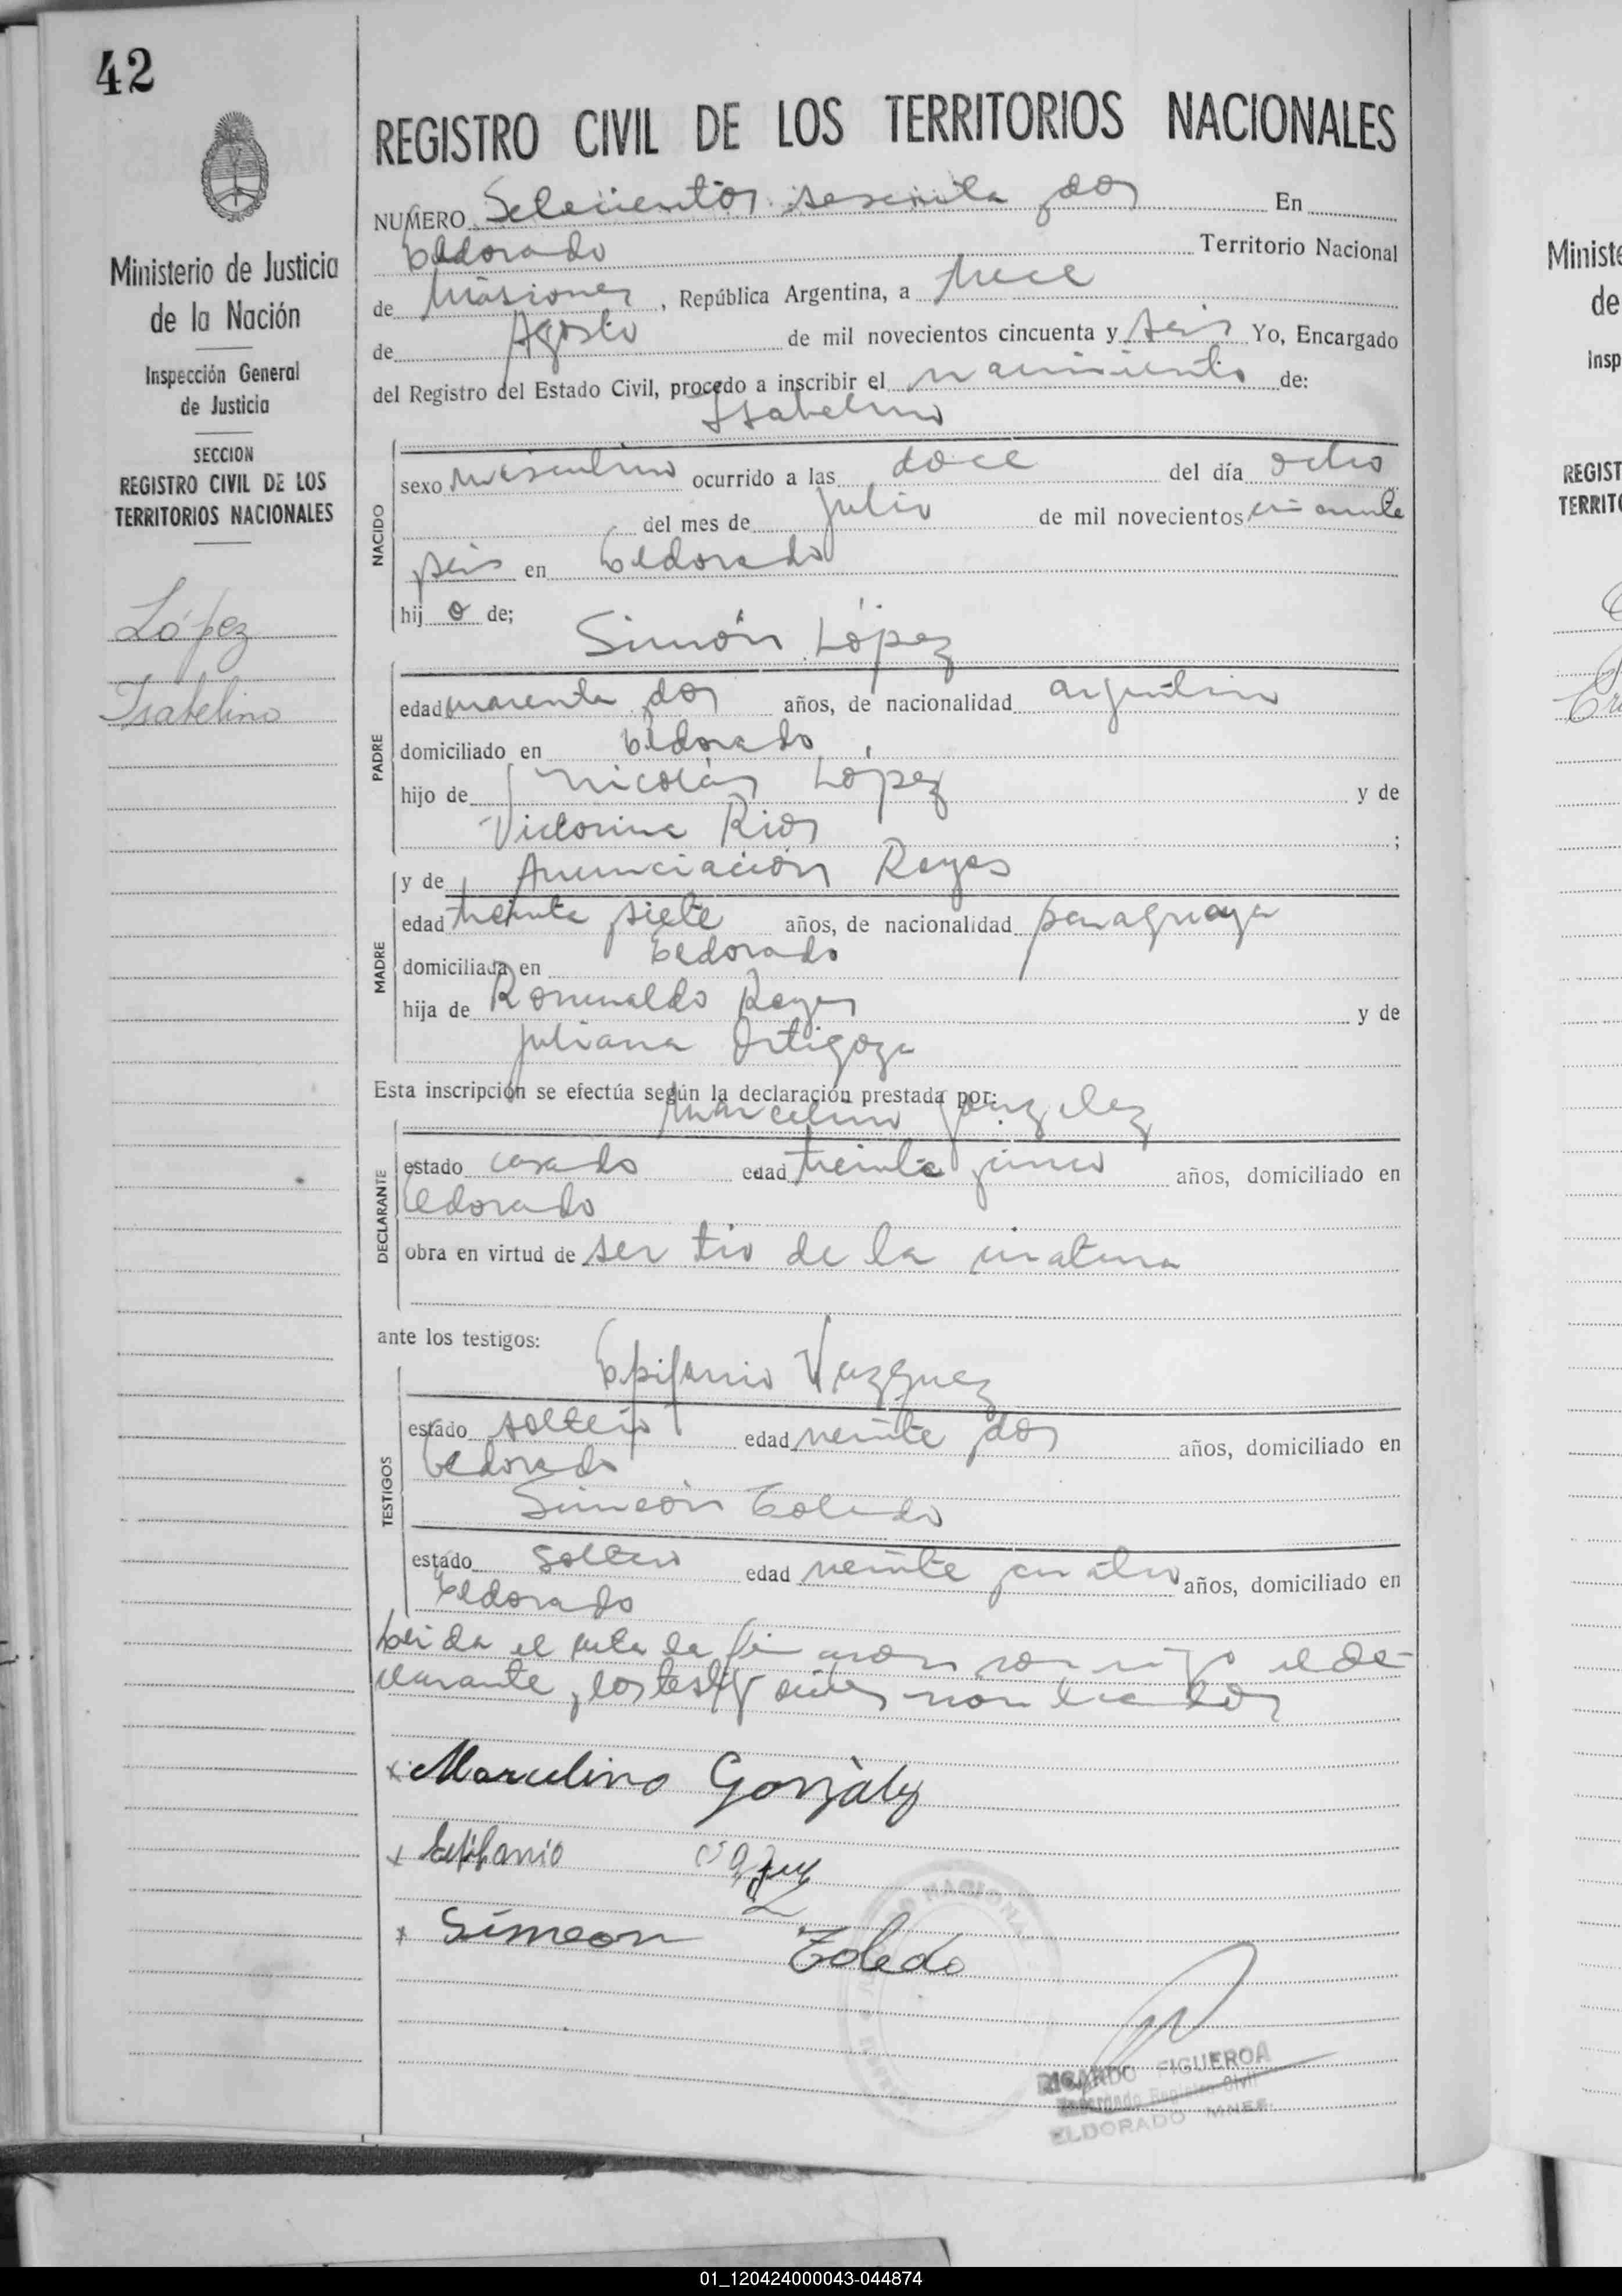 42
REGISTRO CIVIL DE LOS TERRITORIOS NACIONALES
NUMERO Setecientos sesenta y dos En
Eldorado Territorio Nacional
de Misiones, República Argentina, a trece
de Agosto de mil novecientos cincuenta y seis Yo, Encargado
del Registro del Estado Civil, procedo a inscribir el nacimiento de:
Isabelino
Ministerio de Justicia
de la Nación
Inspección General
de Justicia
SECCION
REGISTRO CIVIL DE LOS
TERRITORIOS NACIONALES
López
Isabelino
NACIDO
sexo masculino ocurrido a las doce del día ocho
del mes de Julio de mil novecientos cincuenta
seis en Eldorado
hij o de;
Simón López
PADRE
edad cuarenta y dos años, de nacionalidad argentino
domiciliado en Eldorado
hijo de Nicolás López y de
Victorina Rios ;
y de Anunciación Reyes
MADRE
edad treinta y siete años, de nacionalidad paraguaya
domiciliada en Eldorado
hija de Romualdo Reyes y de
Juliana Ortigoza
Esta inscripción se efectúa según la declaración prestada por:
Marcelino Gonzalez
DECLARANTE
estado casado edad treinta y cinco años, domiciliado en
Eldorado
obra en virtud de ser tio de la
ante los testigos:
Epifanio Vazquez
TESTIGOS
estado soltero edad veinte y dos años, domiciliado en
Eldorado
Simeón Toledo
estado soltero edad veinte y cuatro años, domiciliado en
Eldorado
Leida el acta la firmaron conmigo el de-
clarante y los testigos nombrados
x Marcelino Gonzàlez
x Epifanio Vazquez
x Simeon Toledo
RICARDO FIGUEROA
Encargado Registro Civil
ELDORADO MNES.
Ministe
de
Insp
REGIST
TERRITO
01_120424000043-044874